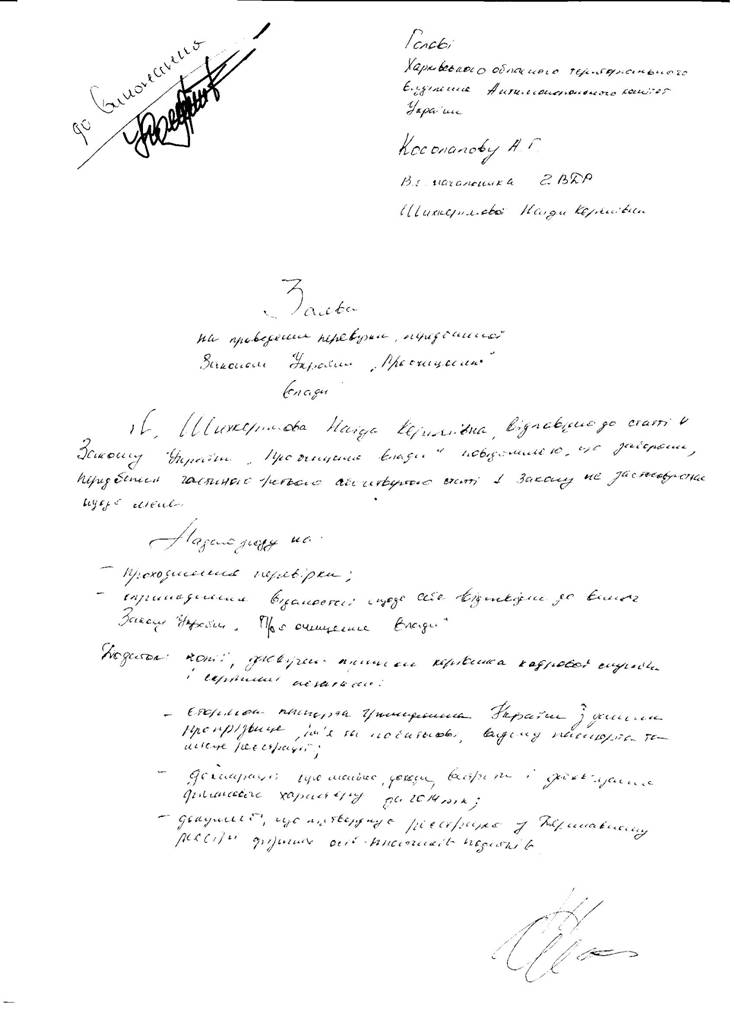 до виконання
Голові
Харківського обласного територіального
відділення Антимонопольного комітет
України
Косолапову А Г.
В.о. начальника 2 ВДР
Шихкерімової Наіди Керимівни
Заява
на проведення перевірки, передбаченої
Законом України „Про очищення
влади"
Я, Шихкерімова Наіда Керимівна, відповідно до статті 4
Закону України „Про очищення влади" повідомляю, що заборони,
передбачені частиною третьою або четвертою статті 1 Закону не застосовуються
щодо мене.
Надаю згоду на:
– проходження перевірки;
– оприлюднення відомостей щодо себе відповідно до вимог
Закону України „Про очищення влади"
Додаток: копії, засвідчені підписом керівника кадрової служби
і скріплені печаткою:
– сторінок паспорта громадянина України з даними
про прізвище, ім'я та по батькові, видачу паспорта та
місце реєстрації;
– декларації про майно, доходи, витрати і зобов'язання
фінансового характеру за 2014 рік;
– документа, що підтверджує реєстрацію у Державному
реєстрі фізичних осіб-платників податків